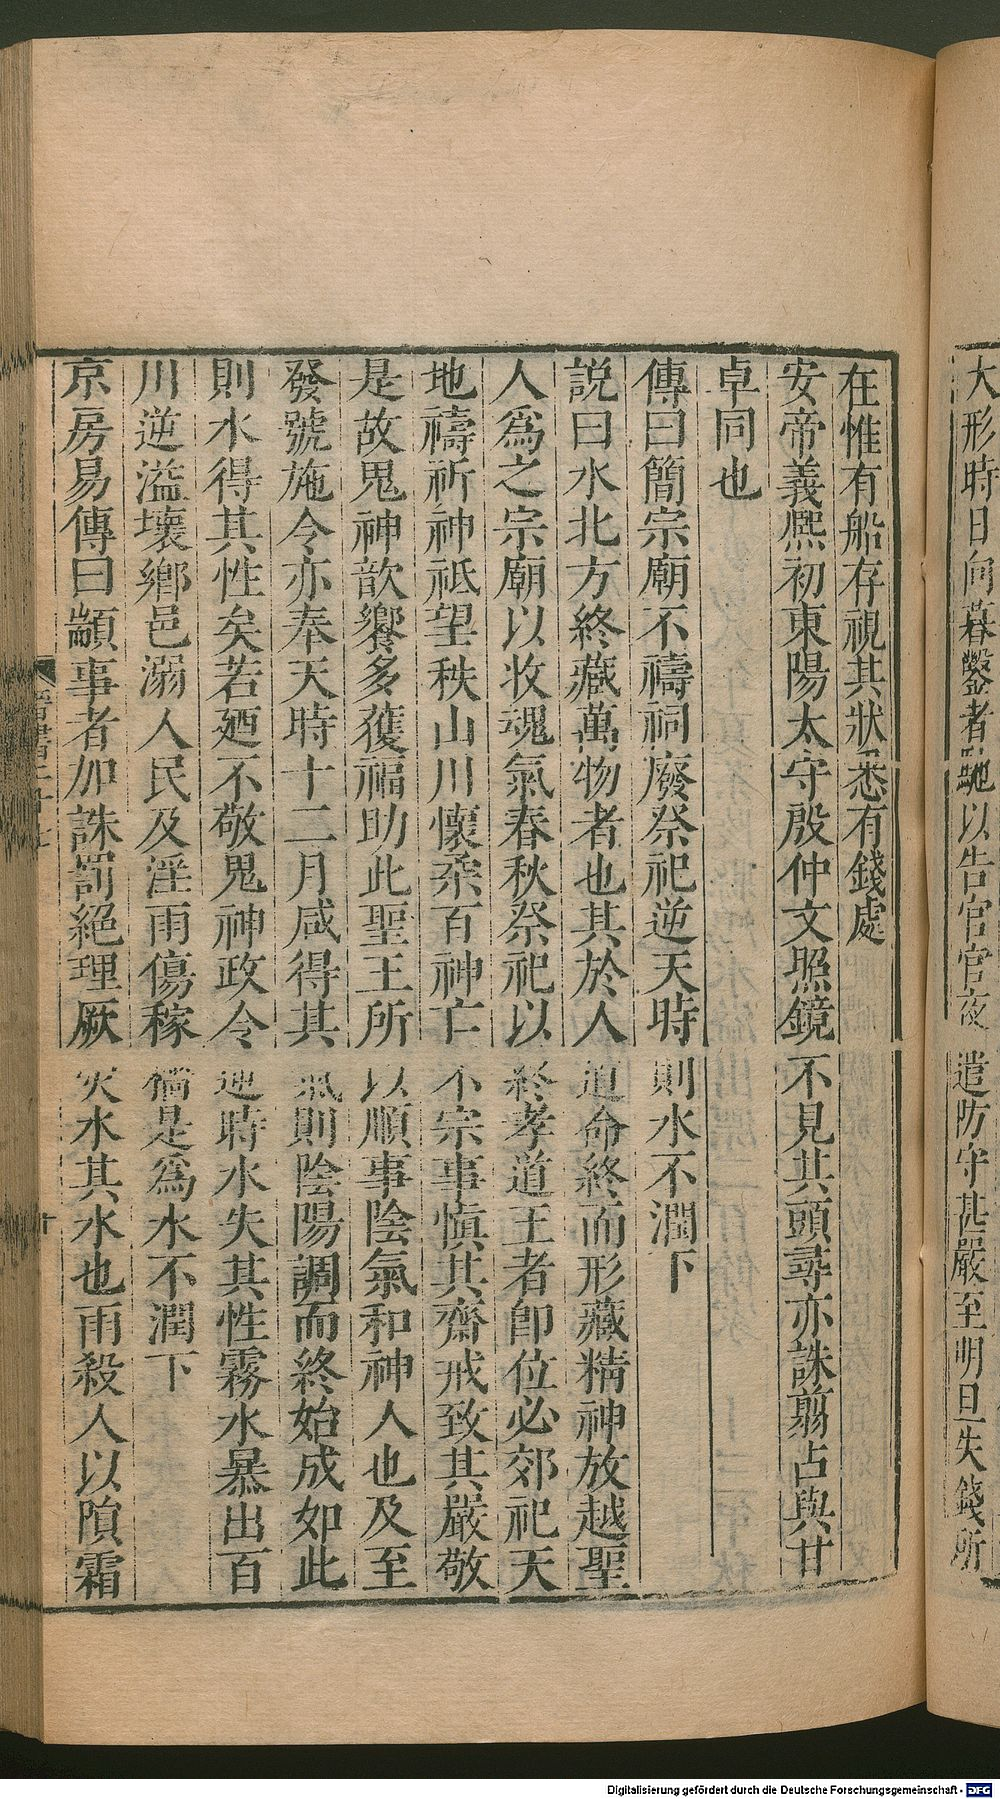 大形時日向暮鑿者馳以告官官夜遣防守甚嚴至明旦失錢所
在惟有船存視其狀悉有錢處
安帝義熙初東陽太守殷仲文照鏡不見其頭尋亦誅翦占與甘
卓同也
傳曰簡宗廟不禱祠廢祭祀逆天時則水不潤下
說曰水北方終藏萬物者也其於人道命終而形藏精神放越聖
人爲之宗廟以收魂氣春秋祭祀以終孝道王者卽位必郊祀天
地禱祈神祇望秩山川懷柔百神亡不宗事愼其齋戒致其嚴敬
是故鬼神歆饗多獲福助此聖王所以順事陰氣和神人也及至
發號施令亦奉天時十二月咸得其氣則陰陽調而終始成如此
則水得其性矣若廼不敬鬼神政令逆時水失其性霧水暴出百
川逆溢壞鄉邑溺人民及淫雨傷稼穡是爲水不潤下
京房易傳曰顓事者加誅罰絕理厥災水其水也雨殺人以隕霜
晉書二十七
十
Digitalisierung gefördert durch die Deutsche Forschungsgemeinschaft - DFG